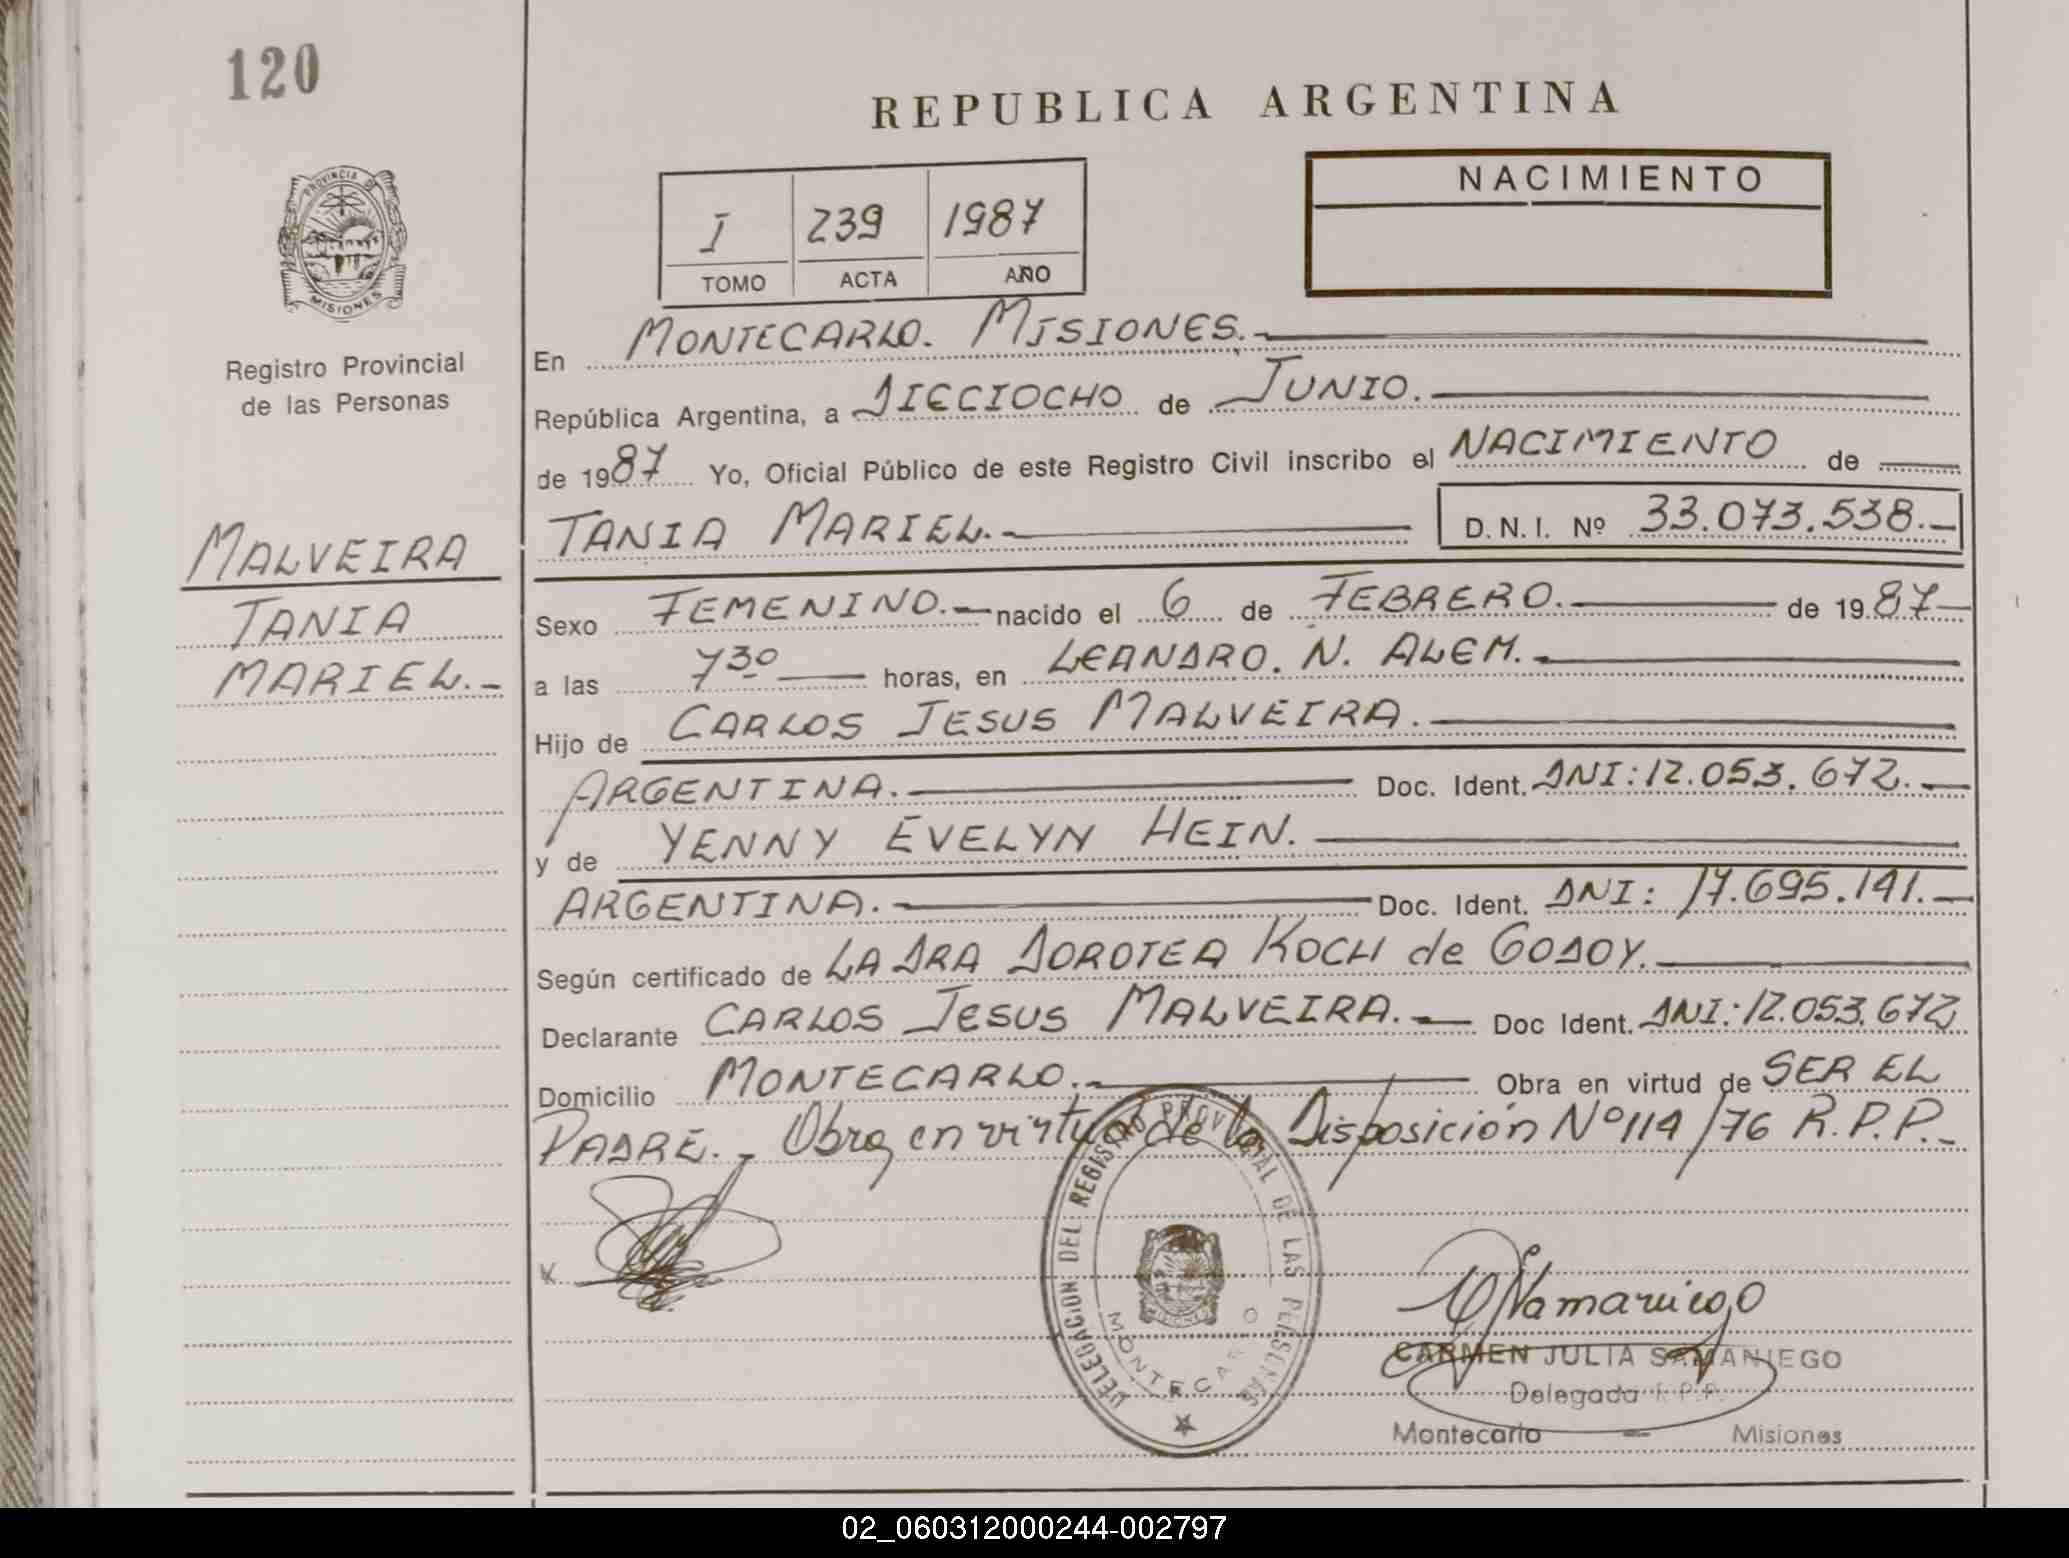 120
REPUBLICA ARGENTINA
PROVINCIA DE
MISIONES
Registro Provincial
de las Personas
I 239 1987
TOMO ACTA AÑO
NACIMIENTO
En MONTECARLO. MISIONES.
República Argentina, a DIECIOCHO de JUNIO.
de 1987 Yo, Oficial Público de este Registro Civil inscribo el NACIMIENTO de
TANIA MARIEL. D.N.I. Nº 33.073.538.-
MALVEIRA
TANIA
MARIEL.-
Sexo FEMENINO.- nacido el 6 de FEBRERO. de 1987
a las 7 30 horas, en LEANDRO. N. ALEM.
Hijo de CARLOS JESUS MALVEIRA.
ARGENTINA. Doc. Ident. DNI: 12.053.672.-
y de YENNY EVELYN HEIN.
ARGENTINA. Doc. Ident. DNI: 17.695.141.-
Según certificado de LA DRA DOROTEA KOCH de GODOY.
Declarante CARLOS JESUS MALVEIRA.- Doc Ident. DNI: 12.053.672
Domicilio MONTECARLO. Obra en virtud de SER EL
PADRE.- Obra en virtud de la Disposición Nº 114/76 R.P.P.-
DELEGACION DEL REGISTRO PROVINCIAL DE LAS PERSONAS
MONTECARLO
x
CARMEN JULIA SAMANIEGO
Delegada R.P.P.
Montecarlo - Misiones
02_060312000244-002797